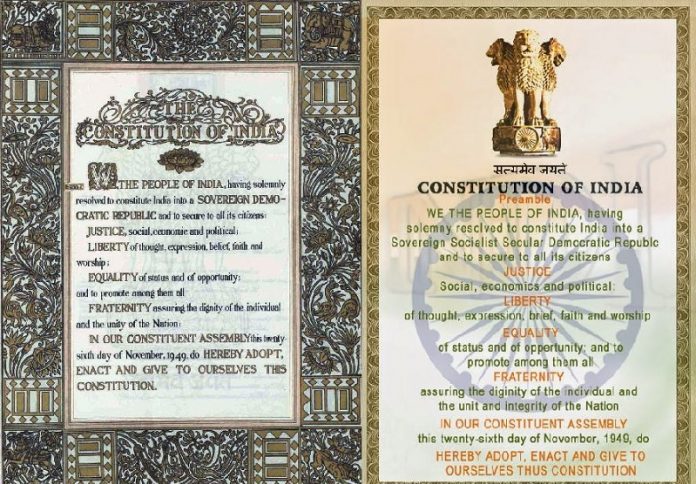 THE
CONSTITUTION OF INDIA
WE, THE PEOPLE OF INDIA, having solemnly
resolved to constitute India into a SOVEREIGN DEMO-
CRATIC REPUBLIC and to secure to all its citizens:
JUSTICE, social, economic and political;
LIBERTY of thought, expression, belief, faith and
worship;
EQUALITY of status and of opportunity;
and to promote among them all
FRATERNITY assuring the dignity of the individual
and the unity of the Nation;
IN OUR CONSTITUENT ASSEMBLY this twenty
sixth day of November, 1949, do HEREBY ADOPT,
ENACT AND GIVE TO OURSELVES THIS
CONSTITUTION.
सत्यमेव जयते
CONSTITUTION OF INDIA
Preamble
WE THE PEOPLE OF INDIA, having
solemny resolved to constitute India into a
Sovereign Socialist Secular Democratic Republic
and to secure to all its citizens
JUSTICE
Social, economics and political:
LIBERTY
of thought, expression, brief, faith and worship
EQUALITY
of status and of opportunity; and to
promote among them all
FRATERNITY
assuring the diginity of the individual and
the unit and integrity of the Nation
IN OUR CONSTITUENT ASSEMBLY
this twenty-sixth day of November, 1949, do
HEREBY ADOPT, ENACT AND GIVE TO
OURSELVES THUS CONSTITUTION